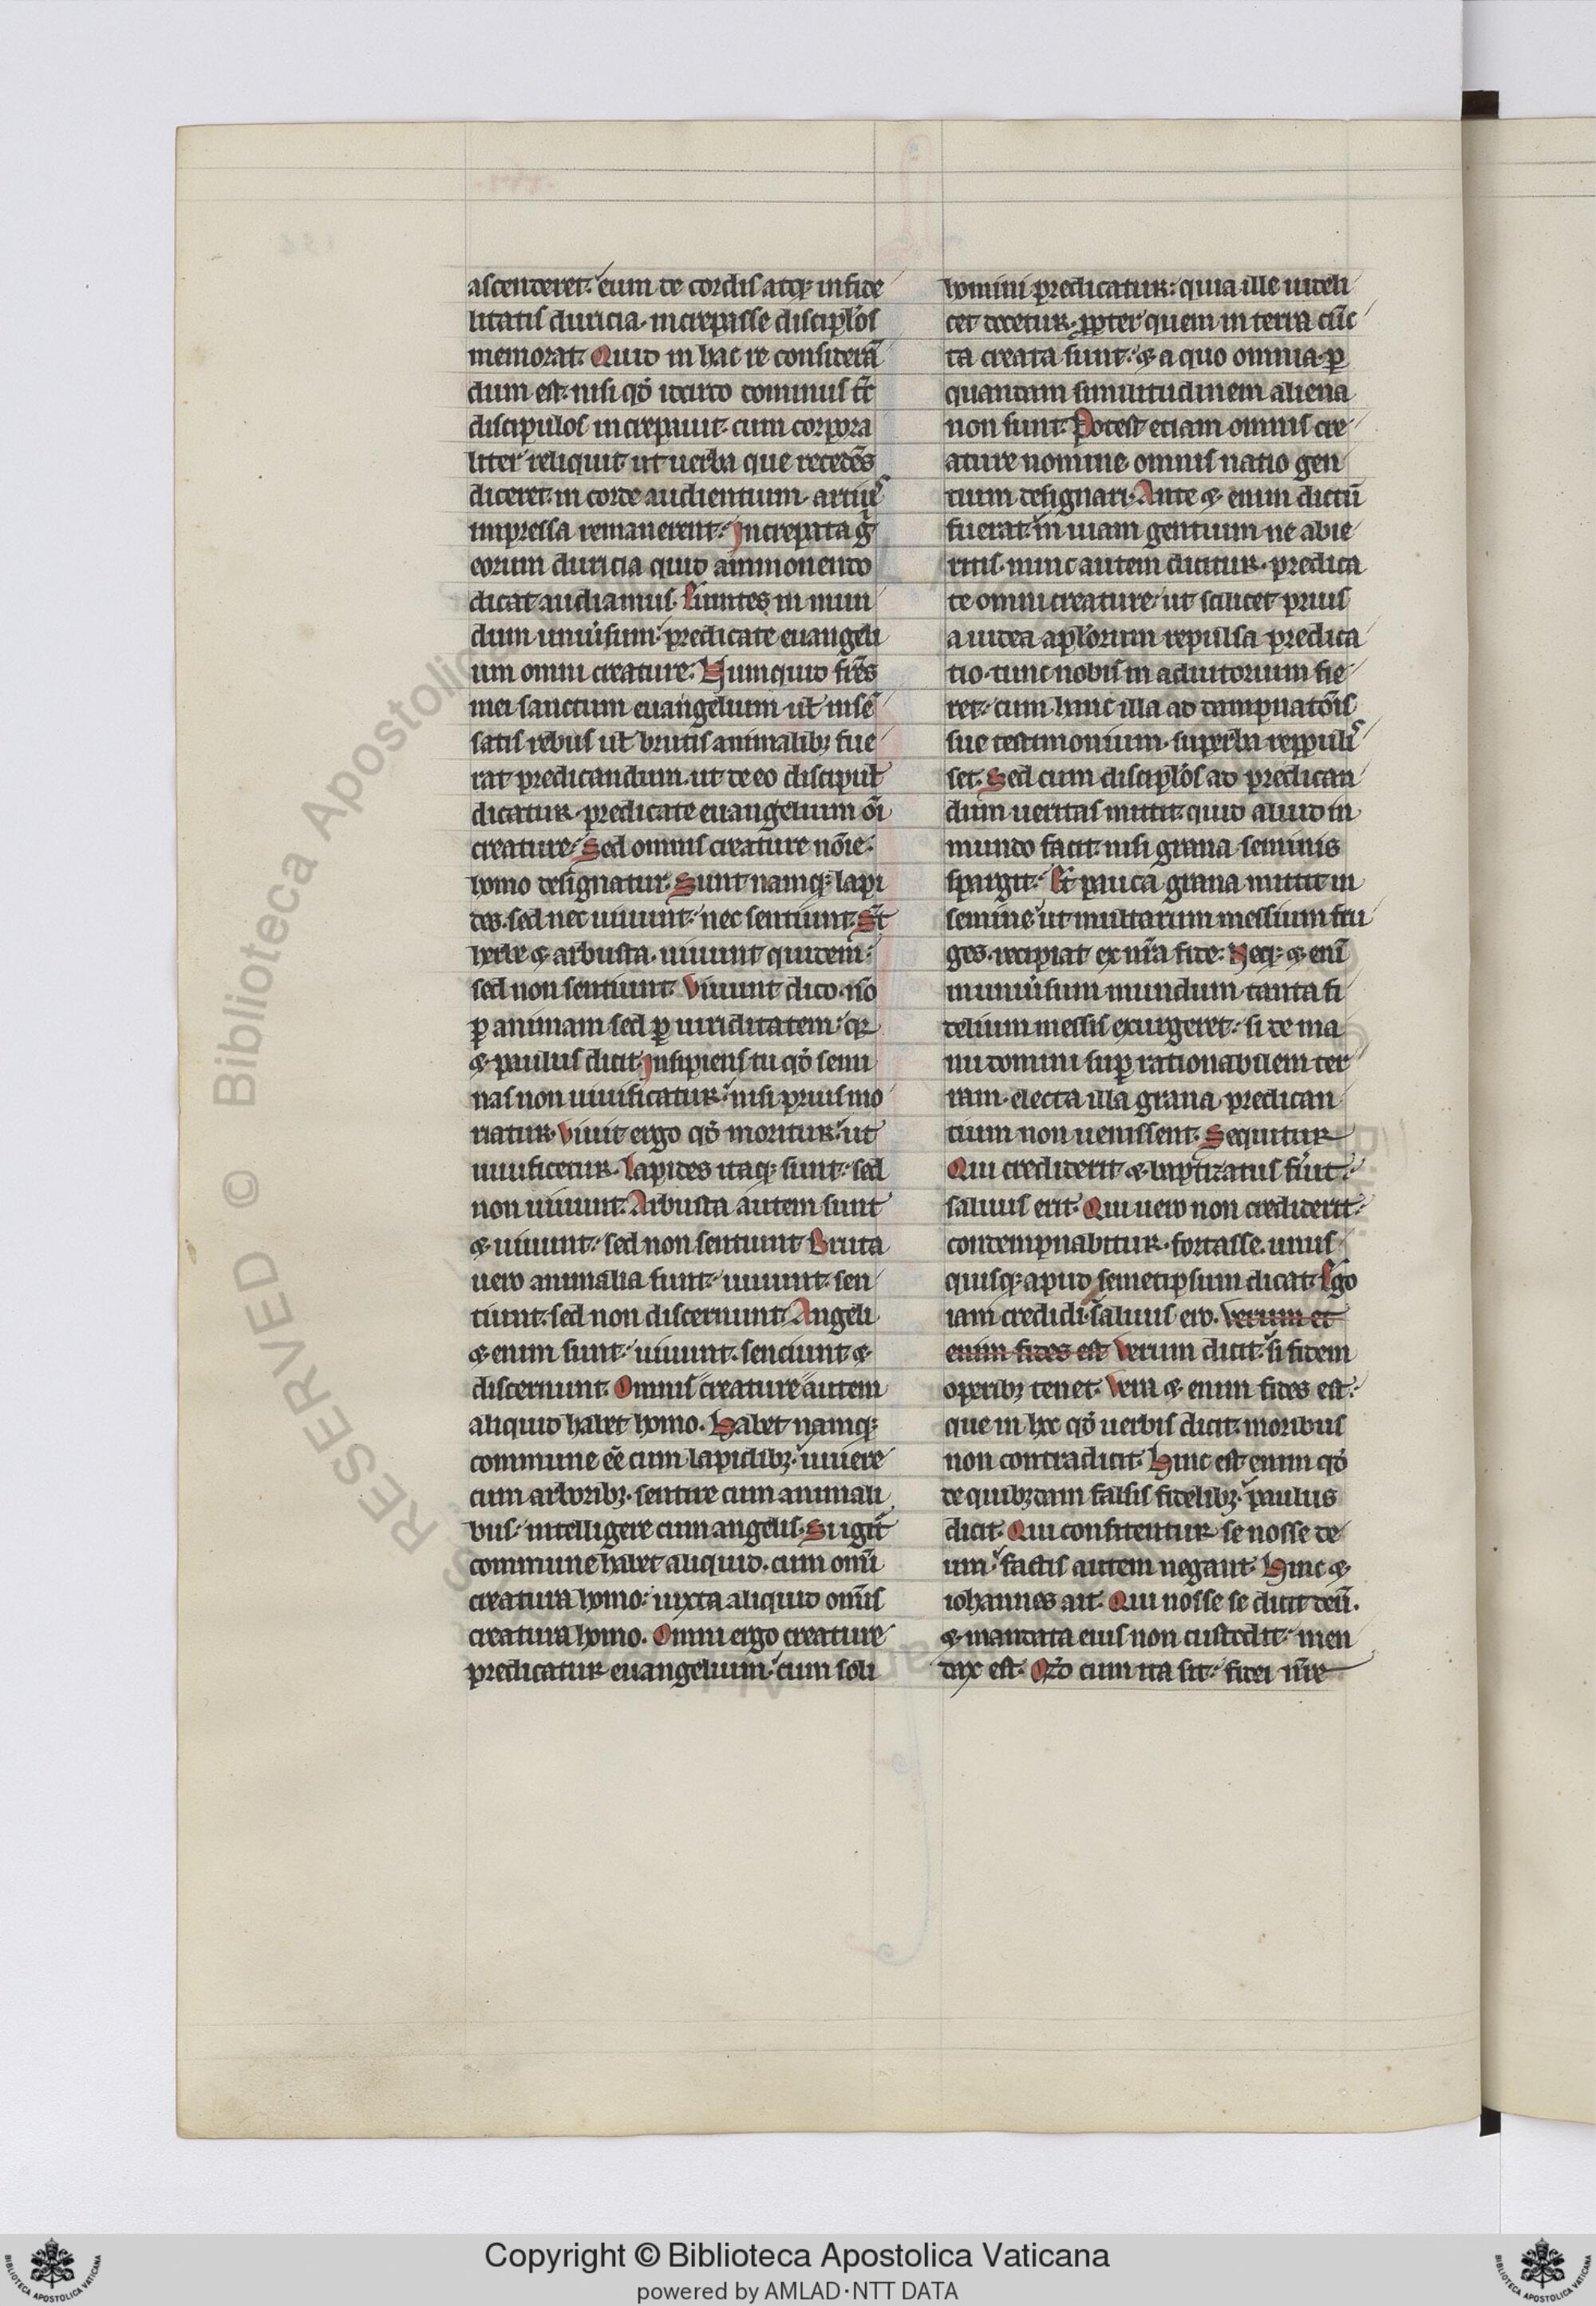 ascenderet. eum de cordis atq; infide
litatis duricia. increpasse disciplos
memorat. Quid in hac re considerā
dum est. nisi qd idcirco dominus tc̄
discipulos increpauit. cum corpora
liter reliquit. ut uerba que recedēs
diceret. in corde audientium. artiꝰ
impressa remanerent. Increpata g̃
eorum duricia quid ammonendo
dicat audiamus. Euntes in mun
dum uniuersum. predicate euangeli
um omni creature. Numquid fr̄es
mei sanctum euangelium ul' inse
satis rebus ul' brutis animalib; fue
rat predicandum. ut de eo discipul'
dicatur. predicate euangelium ōi
creature. Sed omnis creature nōie.
homo designatur. Sunt namq; lapi
des. sed nec uiuunt. nec sentiunt. St̄
herbe & arbusta. uiuunt quidem.
sed non sentiunt. Viuunt dico. nō
ꝑ animam sed ꝑ uiriditatem. qr
& paulus dicit. Insipiens tu qd semi
nas non uiuificatur. nisi prius mo
riatur. Viuit ergo qd moritur. ut
uiuificetur. Lapides itaq; sunt. sed
non uiuunt. Arbusta autem sunt
& uiuunt. sed non sentiunt. Bruta
uero animalia sunt. uiuunt. sen
tiunt. sed non discernunt. Angeli
& enim sunt. uiuunt. senciunt &
discernunt. Omnis creature autem
aliquid habet homo. Habet namq;
commune ēe cum lapidib;. uiuere
cum arborib;. sentire cum animali
bus. intelligere cum angelis. Si igit̄
commune habet aliquid. cum omī
creatura homo. iuxta aliquid omīs
creatura homo. Omni ergo creature
predicatur euangelium. cum soli
homini predicatur. quia ille uideli
cet docetur. ꝓpter quem in terra cūc
ta creata sunt. & a quo omnia. ꝑ
quandam similitudinem aliena
non sunt. Potest etiam omnis cre
ature nomine. omnis natio gen
tium designari. Ante & enim dictū
fuerat. in uiam gentium ne abie
ritis. nunc autem dicitur. predica
te omni creature. ut scilicet prius
a iudea aplorum repulsa predica
tio. tunc nobis in adiutorium fie
ret. cum hanc illa ad dampnatōis
sue testimonium. superba reppulis
set. Sed cum disciplos ad predican
dum ueritas mittit. quid aliud in
mundo facit. nisi grana seminis
spargit. Et pauca grana mittit in
semine. ut multarum messium fru
ges. recipiat ex nr̄a fide. Neq; & enī
in uniuersum mundum. tanta fi
delium messis exurgeret. si de ma
nu domini suꝑ rationabilem ter
ram. electa illa grana predican
tium non uenissent. Sequitur
Qui crediderit & baptizatus fuit.
saluus erit. Qui uero non crediderit.
condempnabitur. fortasse. unus
quisq; apud semetipsum dicat. Ego
iam credidi. saluus ero. verum et
enim fides est Verum dicit. si fidem
operib; tenet. Vera & enim fides est.
que in hoc qd uerbis dicit. moribus
non contradicit. Hinc est enim qd
de quib;dam falsis fidelib;. paulus
dicit. Qui confitentur se nosse de
um. factis autem negant. Hinc &
iohannes ait. Qui nosse se dicit deū.
& mandata eius non custodit. men
dax est. Qd cum ita sit. fidei nr̄e
RESERVED © Biblioteca Apostolica
Copyright © Biblioteca Apostolica Vaticana
powered by AMLAD·NTT DATA
BIBLIOTECA APOSTOLICA VATICANA
BIBLIOTECA APOSTOLICA VATICANA